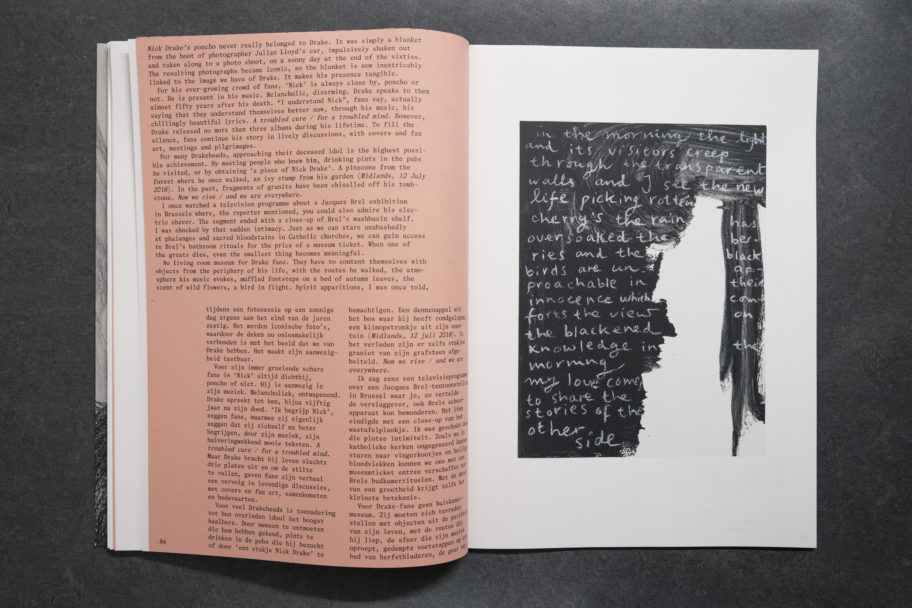 Nick Drake's poncho never really belonged to Drake. It was simply a blanket
from the boot of photographer Julian Lloyd's car, impulsively shaken out
and taken along to a photo shoot, on a sunny day at the end of the sixties.
The resulting photographs became iconic, so the blanket is now inextricably
linked to the image we have of Drake. It makes his presence tangible.
For his ever-growing crowd of fans, 'Nick' is always close by, poncho or
not. He is present in his music. Melancholic, disarming. Drake speaks to them
almost fifty years after his death. "I understand Nick", fans say, actually
saying that they understand themselves better now, through his music, his
chillingly beautiful lyrics. A troubled cure / for a troubled mind. However,
Drake released no more than three albums during his lifetime. To fill the
silence, fans continue his story in lively discussions, with covers and fan
art, meetings and pilgrimages.
For many Drakeheads, approaching their deceased idol is the highest possi-
ble achievement. By meeting people who knew him, drinking pints in the pubs
he visited, or by obtaining 'a piece of Nick Drake'. A pinecone from the
forest where he once walked, an ivy stump from his garden (Midlands, 12 July
2018). In the past, fragments of granite have been chiselled off his tomb-
stone. Now we rise / and we are everywhere.
I once watched a television programme about a Jacques Brel exhibition
in Brussels where, the reporter mentioned, you could also admire his elec-
tric shaver. The segment ended with a close-up of Brel's washbasin shelf.
I was shocked by that sudden intimacy. Just as we can stare unabashedly
at phalanges and sacred bloodstains in Catholic churches, we can gain access
to Brel's bathroom rituals for the price of a museum ticket. When one of
the greats dies, even the smallest thing becomes meaningful.
No living room museum for Drake fans. They have to content themselves with
objects from the periphery of his life, with the routes he walked, the atmo-
sphere his music evokes, muffled footsteps on a bed of autumn leaves, the
scent of wild flowers, a bird in flight. Spirit apparitions, I was once told,
tijdens een fotosessie op een zonnige
dag ergens aan het eind van de jaren
zestig. Het werden iconische foto's,
waardoor de deken nu onlosmakelijk
verbonden is met het beeld dat we van
Drake hebben. Het maakt zijn aanwezig-
heid tastbaar.
Voor zijn immer groeiende schare
fans is 'Nick' altijd dichtbij,
poncho of niet. Hij is aanwezig in
zijn muziek. Melancholiek, ontwapenend.
Drake spreekt tot hen, bijna vijftig
jaar na zijn dood. 'Ik begrijp Nick',
zeggen fans, waarmee zij eigenlijk
zeggen dat zij zichzelf nu beter
begrijpen, door zijn muziek, zijn
huiveringwekkend mooie teksten. A
troubled cure / for a troubled mind.
Maar Drake bracht bij leven slechts
drie platen uit en om de stilte
te vullen, geven fans zijn verhaal
een vervolg in levendige discussies,
met covers en fan art, samenkomsten
en bedevaarten.
Voor veel Drakeheads is toenadering
tot hun overleden idool het hoogst
haalbare. Door mensen te ontmoeten
die hem hebben gekend, pints te
drinken in de pubs die hij bezocht
of door 'een stukje Nick Drake' te
bemachtigen. Een dennenappel uit
het bos waar hij heeft rondgelopen,
een klimopstronkje uit zijn voor-
tuin (Midlands, 12 juli 2018). In
het verleden zijn er zelfs stukjes
graniet van zijn grafsteen afge-
beiteld. Now we rise / and we are
everywhere.
Ik zag eens een televisieprogramma
over een Jacques Brel-tentoonstelling
in Brussel waar je, zo vertelde
de verslaggever, ook Brels scheer-
apparaat kon bewonderen. Het item
eindigde met een close-up van het
wastafelplankje. Ik was geschokt door
die plotse intimiteit. Zoals we in
katholieke kerken ongegeneerd kunnen
staren naar vingerkootjes en heilige
bloedvlekken kunnen we ons met een
museumticket entree verschaffen tot
Brels badkamerrituelen. Met de dood
van een grootheid krijgt zelfs het
kleinste betekenis.
Voor Drake-fans geen huiskamer-
museum. Zij moeten zich tevreden
stellen met objecten uit de periferie
van zijn leven, met de routes die
hij liep, de sfeer die zijn muziek
oproept, gedempte voetstappen op een
bed van herfstbladeren, de geur van
84
in the morning the light
and its visitors creep
through the transparent
walls and I see the new
life picking rotten
cherry's the rain has
oversoaked the ber-
ries and the black
birds are un- ap-
proachable in their
innocence which com
forts the view on
the blackened
knowledge in the
morning
my love come
to share the
stories of the
other side